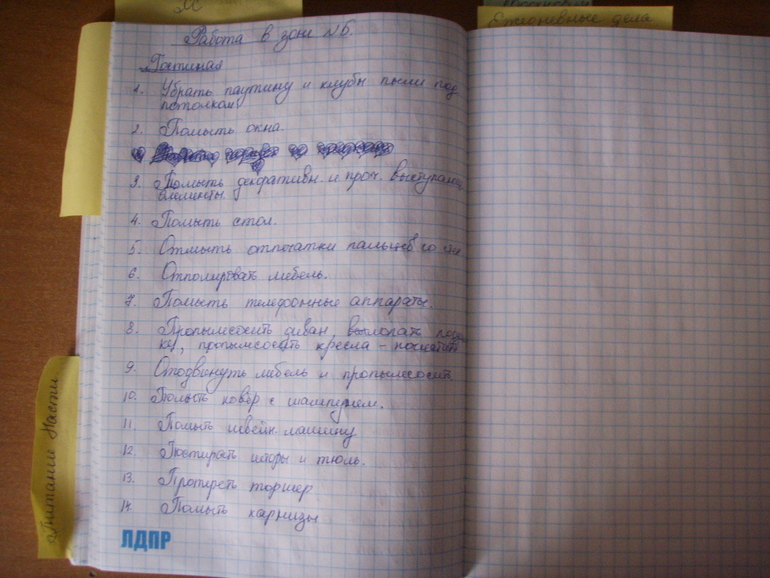 Ежедневные дела
Работа в зоне №6.
Гостиная
1. Убрать паутину и клубы пыли под
потолком
2. Помыть окна.
3. Помыть декоративн. и проч. выступающ.
элементы.
4. Помыть стол.
5. Отмыть отпечатки пальцев со
6. Отполировать мебель.
7. Помыть телефонные аппараты.
8. Пропылесосить диван, выхлопать
пропылесосить кресла -
9. Отодвинуть мебель и пропылесосить
10. Помыть ковёр с шампунем.
11. Помыть швейн. машину
12. Постирать шторы и тюль.
13. Протереть торшер
14. Помыть карнизы
Питание Насти
ЛДПР